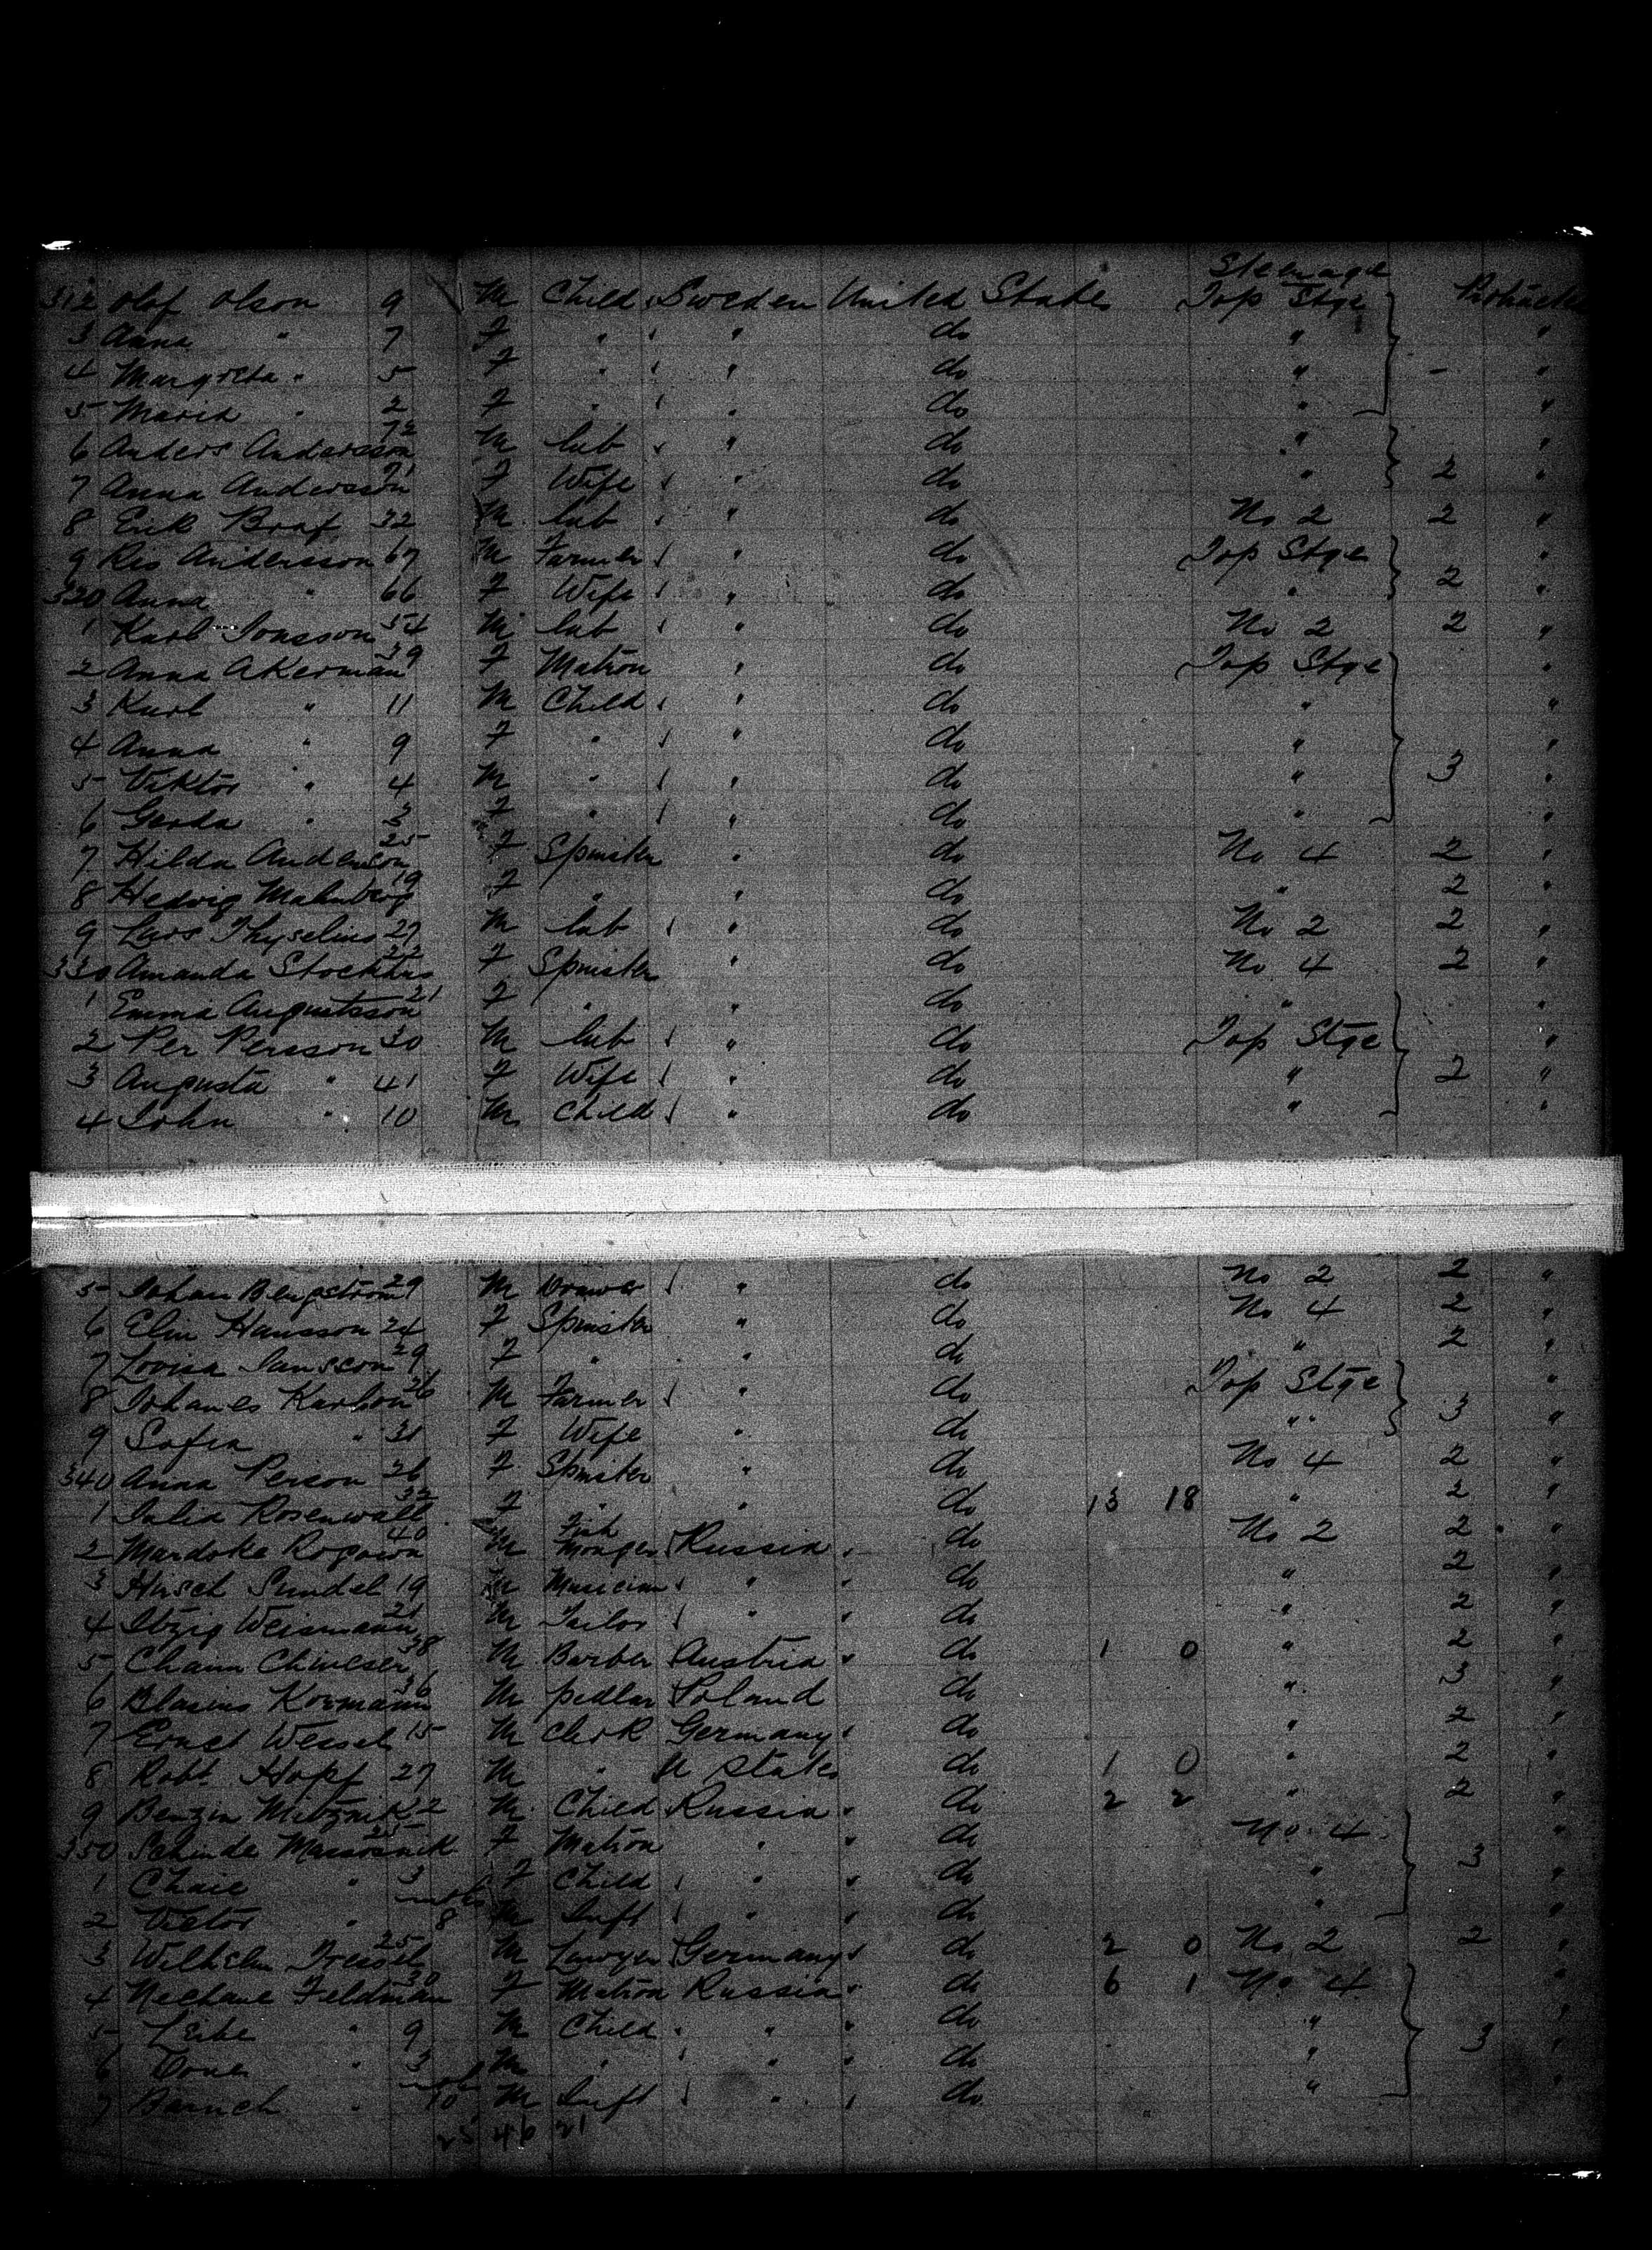 Steerage
312 Olof Olson 9 M Child Sweden United States Top Stge
3 Anna " 7 F " " do " "
4 Margreta " 5 F " " do " - "
5 Maria " 2 F " " do " "
6 Anders Andersson 72 M lab " do " "
7 Anna Andersson 71 F Wife " do " 2 "
8 Erik Braf 32 M lab " do No 2 2 "
9 Andersson 67 M Farmer " do Top Stge "
320 Anna " 66 F Wife " do " 2 "
1 Karl Jonsson 54 M lab " do No 2 2 "
2 Anna Akerman 39 F Matron " do Top Stge "
3 Karl " 11 M Child " do " "
4 Anna " 9 F " " do " "
5 Viktor " 4 M " " do " 3 "
6 Gerda " 3 F " " do " "
7 Hilda Anderson 25 F Spinster " do No 4 2 "
8 Hedvig Malmberg 19 F " " do " 2 "
9 Lars Thyselius 27 M lab " do No 2 2 "
330 Amanda 22 F Spinster " do No 4 2 "
1 Emma Augustsson 21 F " " do " "
2 Per Persson 30 M lab " do Top Stge "
3 Augusta " 41 F Wife " do " 2 "
4 John " 10 M Child " do " "
5 Johan Bergstrom 29 M " do No 2 2 "
6 Elin Hansson 24 F Spinster " do No 4 2 "
7 Lovisa Jansson 29 F " " do " 2 "
8 Johanes Karlson 26 M Farmer " do Top Stge "
9 Sofia " 31 F Wife " do " 3 "
340 Anna Person 26 F Spinster " do No 4 2 "
1 Julia Rosenwall 32 F " " do 13 18 " 2 "
2 Mardoke 40 M Fish Monger Russia do No 2 2 "
3 Hirsch 19 M Musician " " do " 2 "
4 Itzig Weismann 21 M Tailor " " do " 2 "
5 Chaim 38 M Barber Austria " do 1 0 " 2 "
6 Blasius Kormann 36 M pedlar Poland do " 3 "
7 Ernst 15 M Clerk Germany " do " 2 "
8 Robt Hopf 27 M " U States do 1 0 " 2 "
9 M Child Russia " do 2 2 " 2 "
350 25 F Matron " " do No 4 "
1 " 3 F Child " " do " 3 "
2 Victor " 8 M Inft " " do " "
3 Wilhelm 25 M Lawyer Germany " do 2 0 No 2 2 "
4 Feldman 30 F Matron Russia " do 6 1 No 4 "
5 Leibe " 9 M Child " " do " "
6 " 3 M " " " do " 3 "
7 Baruch " 10 M Inft " " do " "
25 46 21